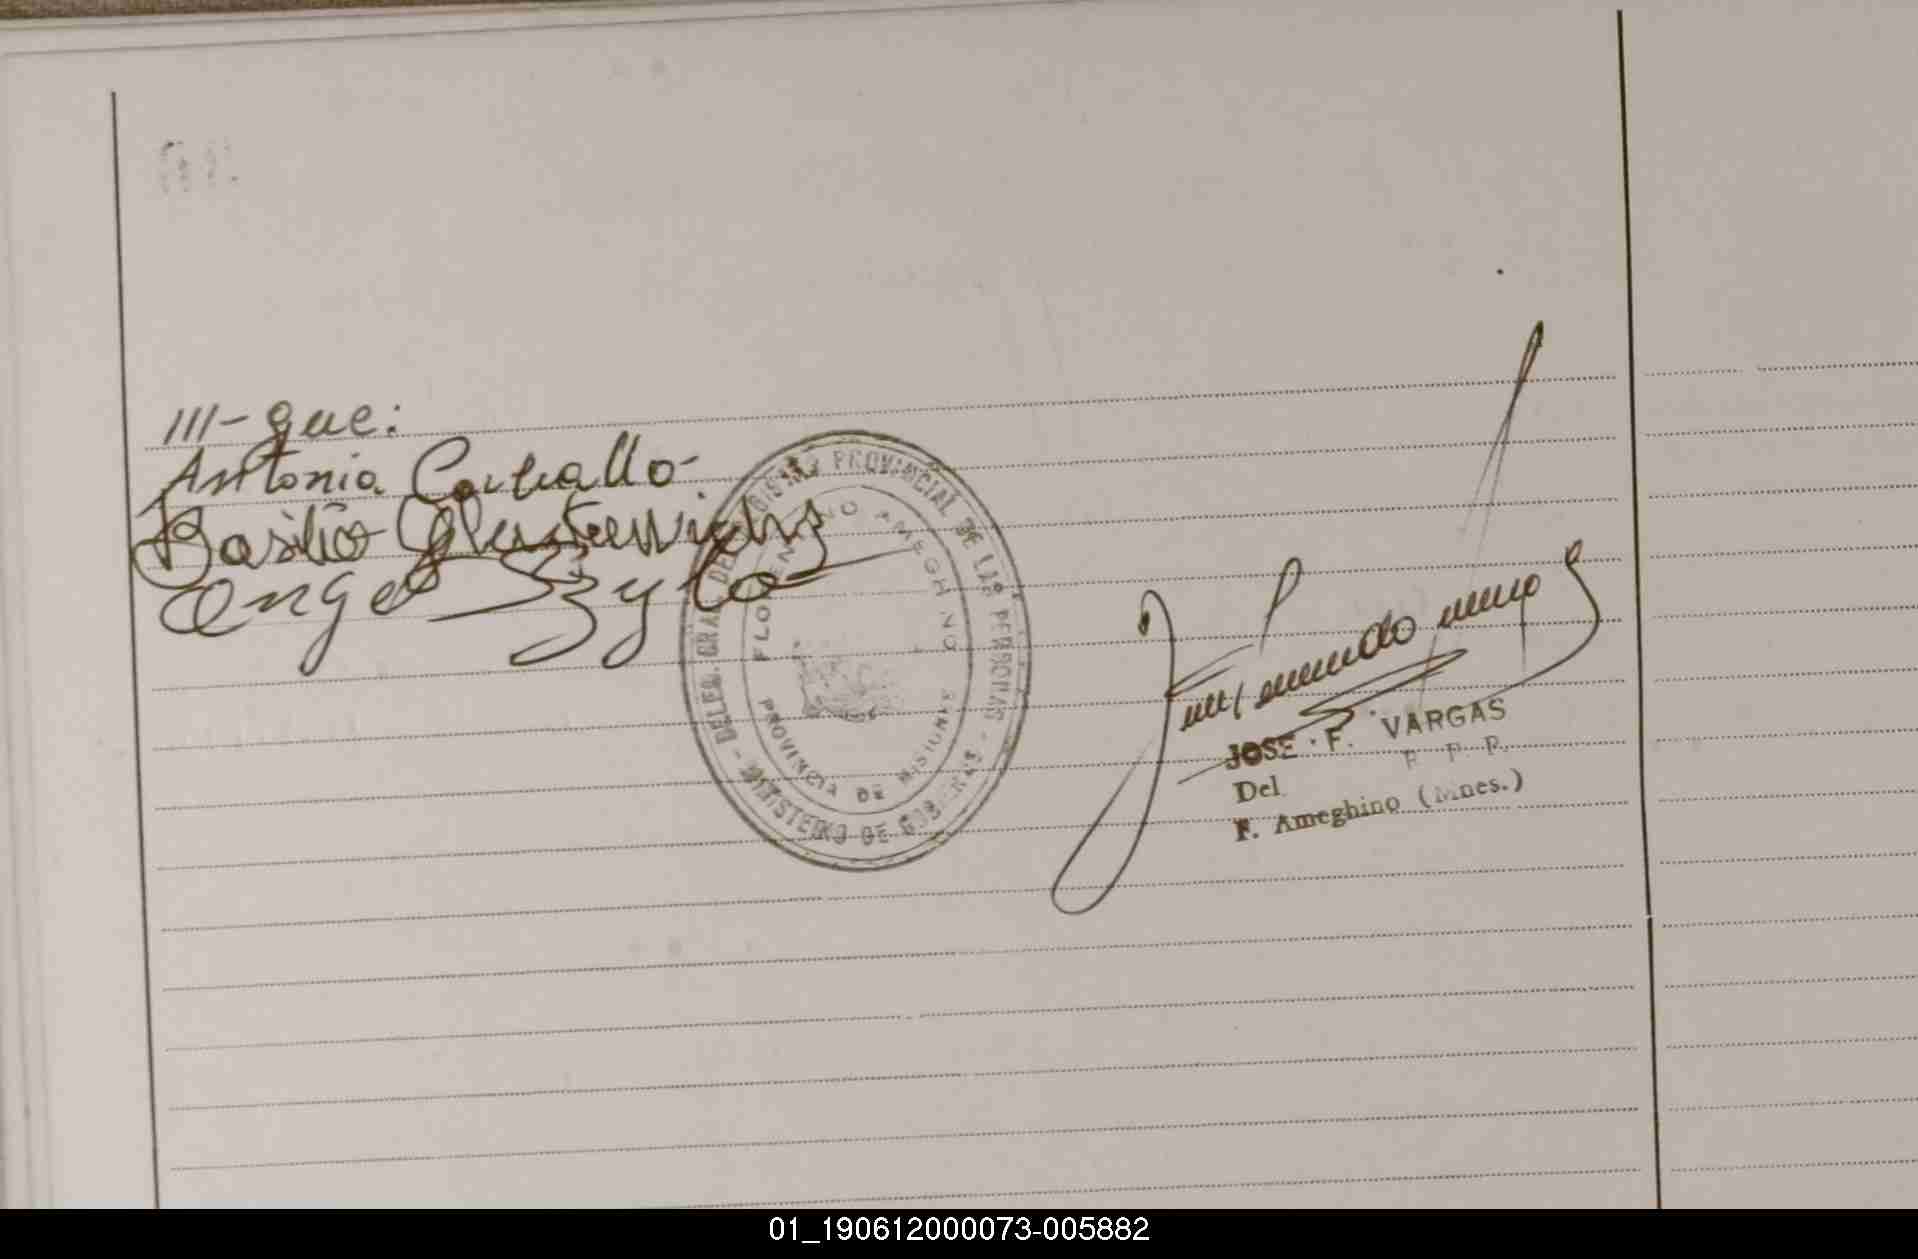 III-que:
Antonia Carvallo-
Basilio
Angel Szyla
- DELEG. GRAL. DEL REGISTRO PROVINCIAL DE LAS PERSONAS -
MINISTERIO DE GOBIERNO
FLORENTINO AMEGHINO
PROVINCIA DE MISIONES
JOSE F. VARGAS
Del. R P P.
F. Ameghino (Mnes.)
01_190612000073-005882